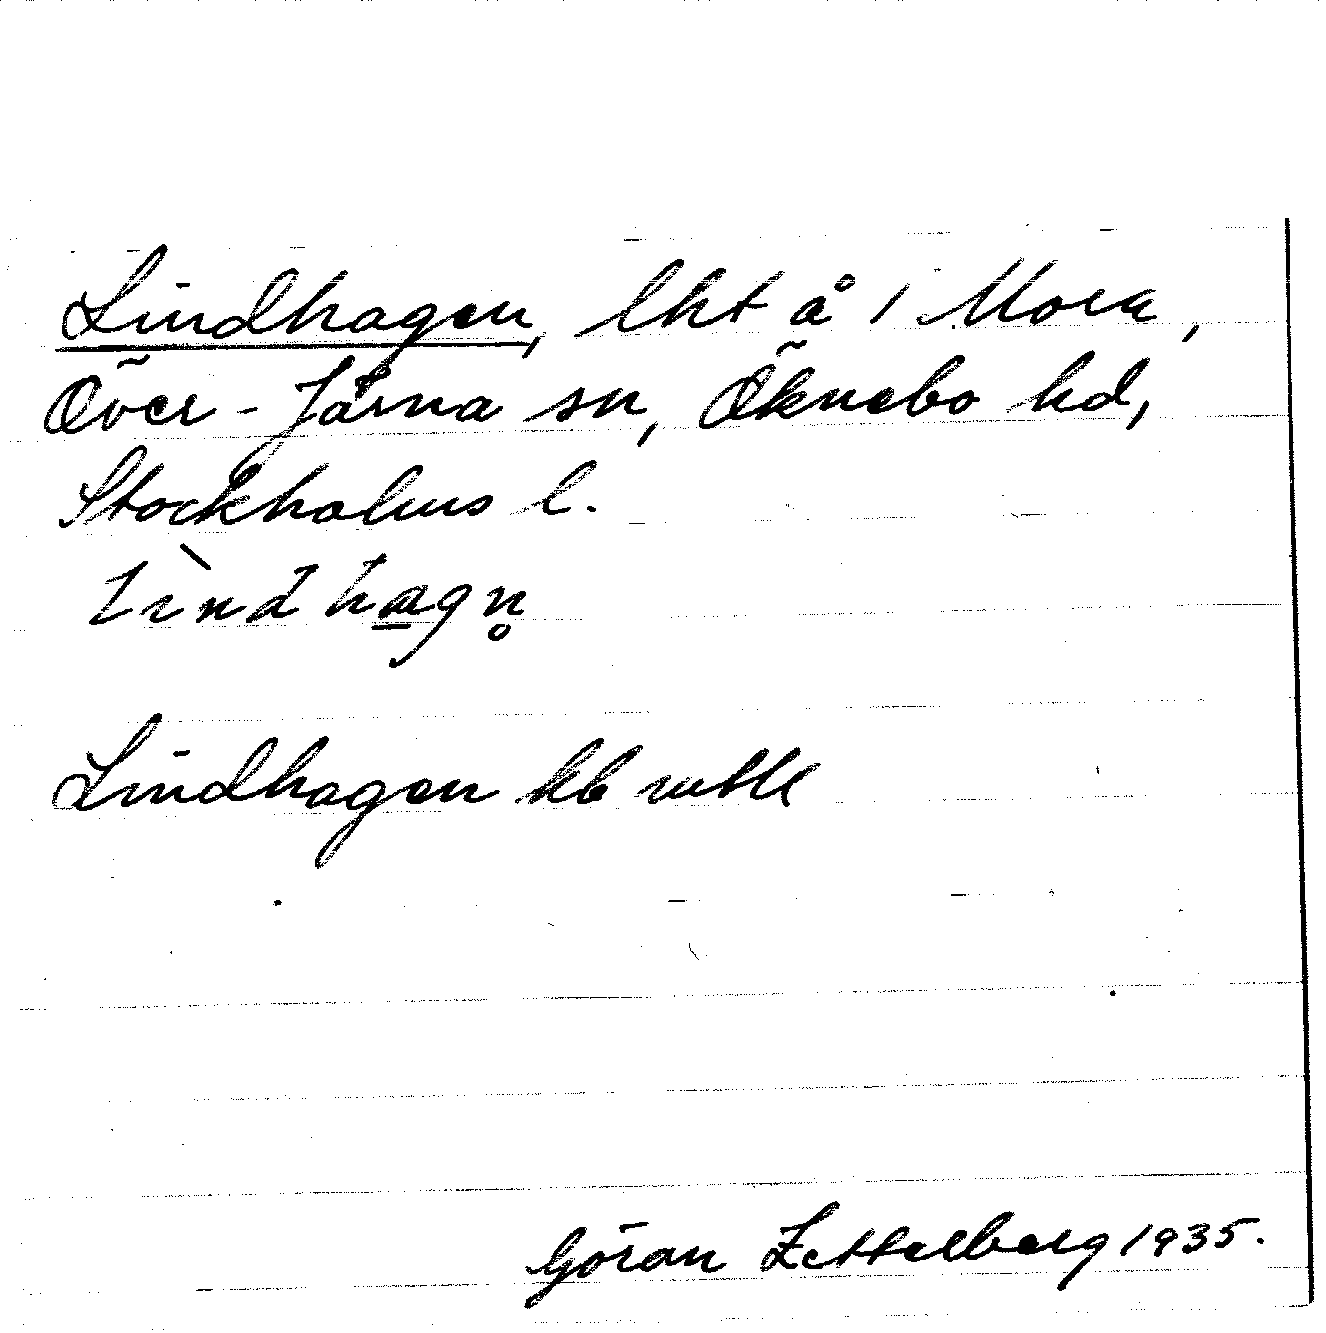 Lindhagen, lht å 1 Mora,
Över-Järna sn, Öknebo hd,
Stockholms l.
lìndhagn̥
Lindhagen kb
Göran Zettelberg 1935.